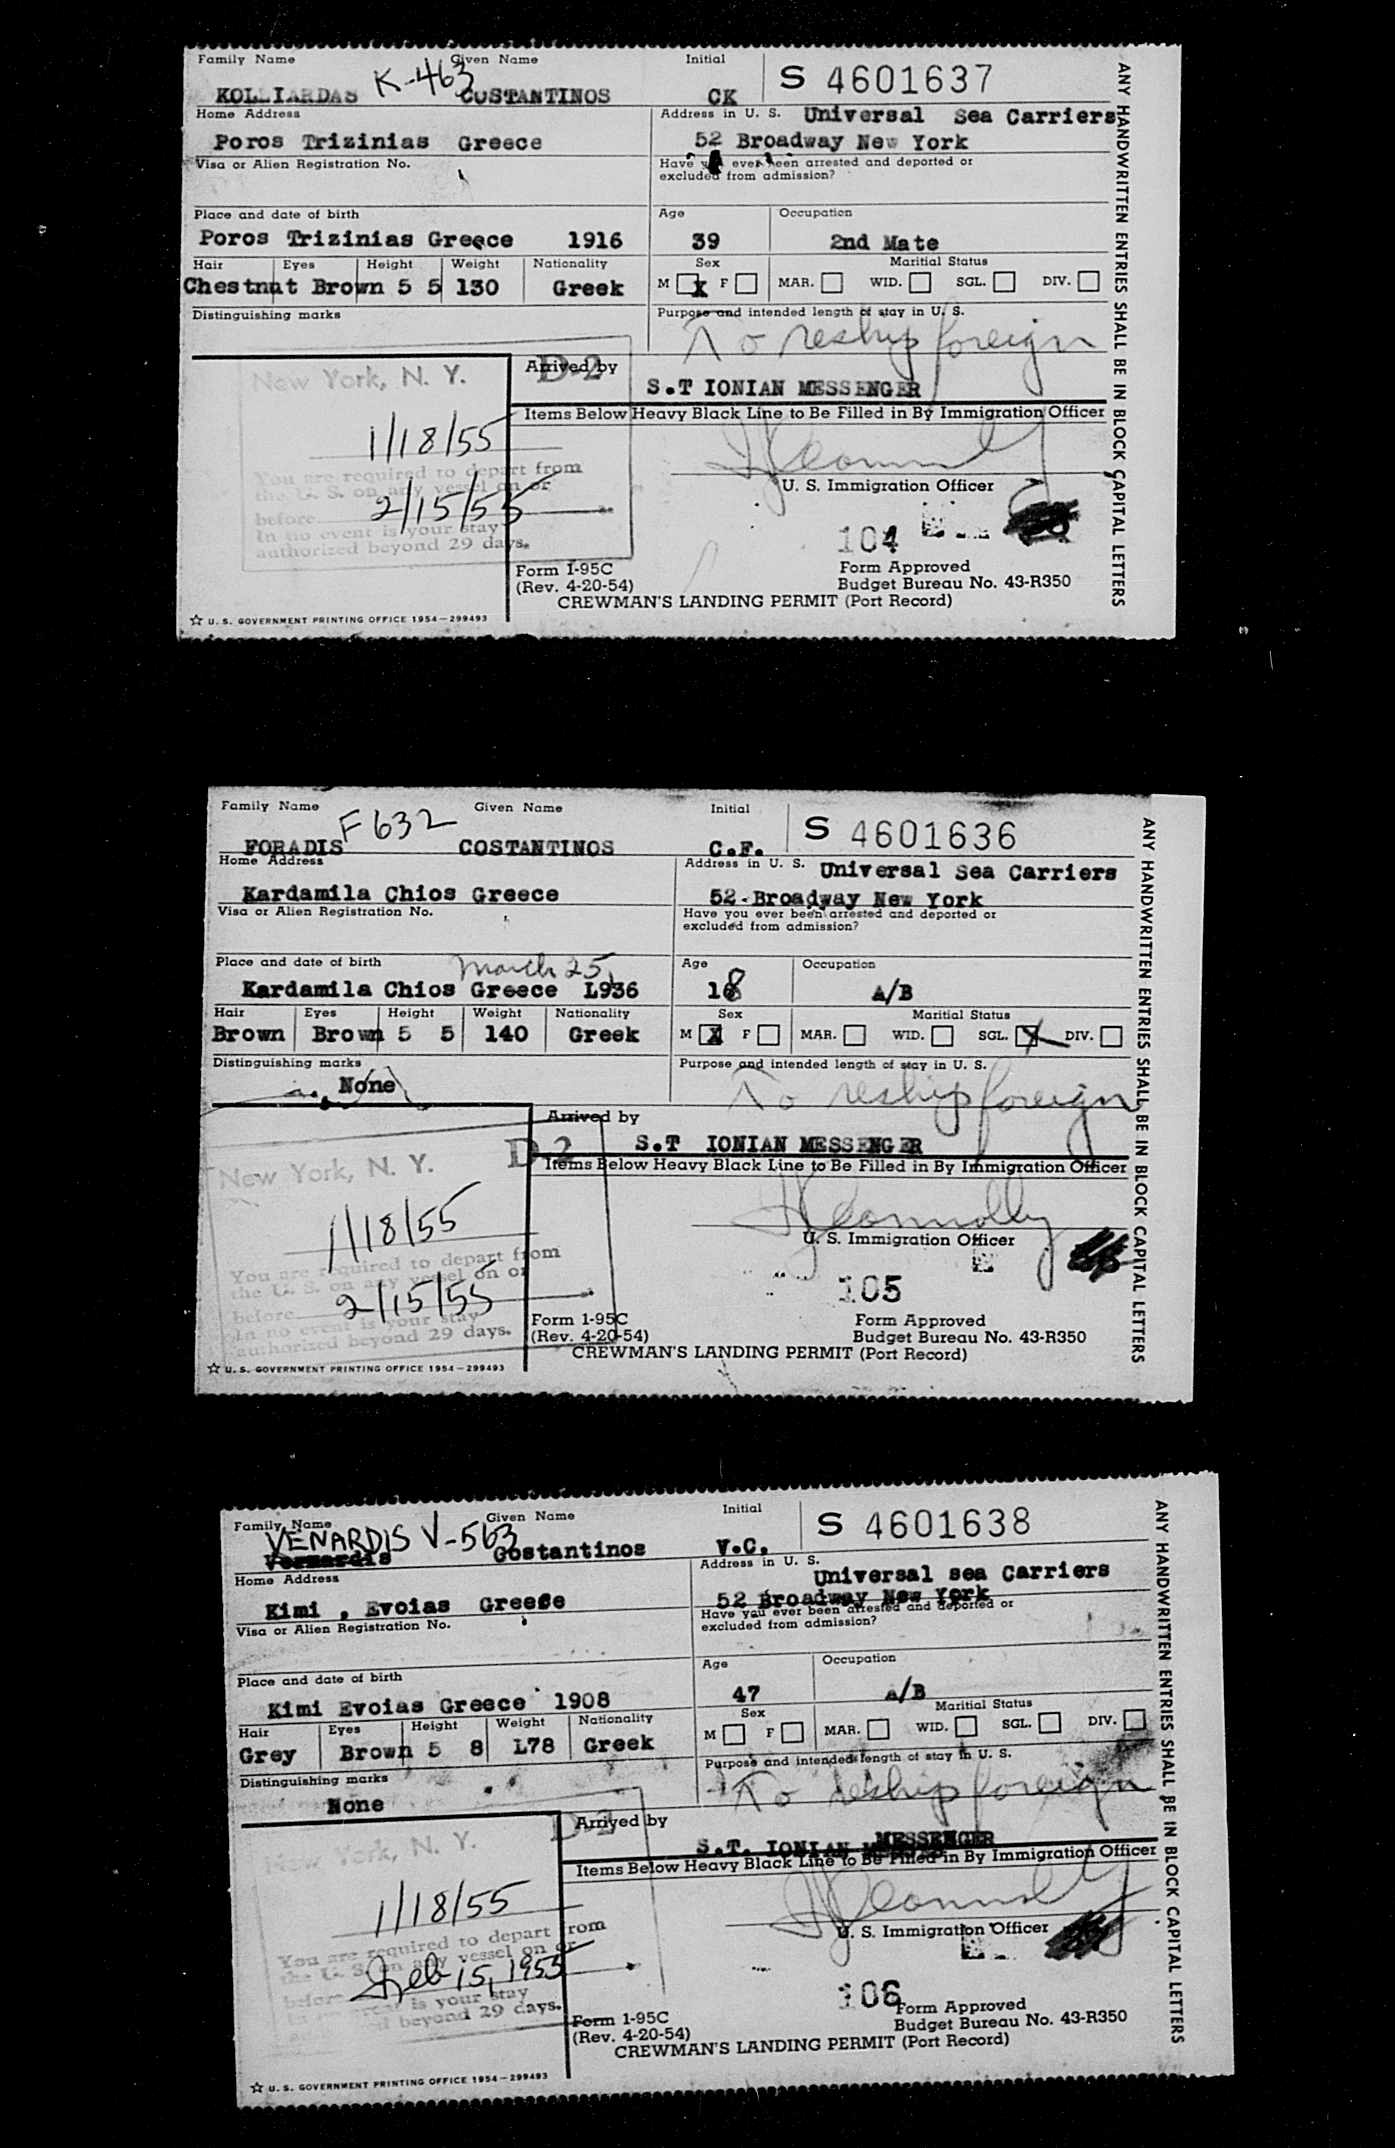 Family Name Given Name Initial S 4601637
KOLLIARDAS K-463 COSTANTINOS CK
Home Address Address in U. S. Universal Sea Carriers
Poros Trizinias Greece 52 Broadway New York
Visa or Alien Registration No. Have you ever been arrested and deported or
excluded from admission?
Place and date of birth Age Occupation
Poros Trizinias Greece 1916 39 2nd Mate
Hair Eyes Height Weight Nationality Sex Maritial Status
Chestnut Brown 5 5 130 Greek M X F MAR. WID. SGL. DIV.
Distinguishing marks Purpose and intended length of stay in U. S.
To reship foreign
New York, N. Y. D-2 Arrived by
S.T IONIAN MESSENGER
Items Below Heavy Black Line to Be Filled in By Immigration Officer
1/18/55
You are required to depart from
the U. S. on any vessel on or
before 2/15/55
In no event is your stay
authorized beyond 29 days.
U. S. Immigration Officer
104
Form I-95C Form Approved
(Rev. 4-20-54) Budget Bureau No. 43-R350
CREWMAN'S LANDING PERMIT (Port Record)
☆ U. S. GOVERNMENT PRINTING OFFICE 1954—299493
ANY HANDWRITTEN ENTRIES SHALL BE IN BLOCK CAPITAL LETTERS
Family Name Given Name Initial S 4601636
FORADIS F632 COSTANTINOS C.F.
Home Address Address in U. S. Universal Sea Carriers
Kardamila Chios Greece 52-Broadway New York
Visa or Alien Registration No. Have you ever been arrested and deported or
excluded from admission?
Place and date of birth March 25, Age Occupation
Kardamila Chios Greece L936 18 A/B
Hair Eyes Height Weight Nationality Sex Maritial Status
Brown Brown 5 5 140 Greek M X F MAR. WID. SGL. X DIV.
Distinguishing marks Purpose and intended length of stay in U. S.
None To reship foreign
New York, N. Y. D-2 Arrived by
S.T IONIAN MESSENGER
Items Below Heavy Black Line to Be Filled in By Immigration Officer
1/18/55
Connolly
You are required to depart from
the U. S. on any vessel on or
before 2/15/55
In no event is your stay
authorized beyond 29 days.
U. S. Immigration Officer
105
Form 1-95C Form Approved
(Rev. 4-20-54) Budget Bureau No. 43-R350
CREWMAN'S LANDING PERMIT (Port Record)
☆ U. S. GOVERNMENT PRINTING OFFICE 1954—299493
ANY HANDWRITTEN ENTRIES SHALL BE IN BLOCK CAPITAL LETTERS
Family Name Given Name Initial S 4601638
VENARDIS V-563 Costantinos V.C.
Home Address Address in U. S. Universal sea Carriers
Kimi , Evoias Greece 52 Broadway New York
Visa or Alien Registration No. Have you ever been arrested and deported or
excluded from admission?
Place and date of birth Age Occupation
Kimi Evoias Greece 1908 47 A/B
Hair Eyes Height Weight Nationality Sex Maritial Status
Grey Brown 5 8 L78 Greek M F MAR. WID. SGL. DIV.
Distinguishing marks Purpose and intended length of stay in U. S.
None To reship foreign
New York, N. Y. D-2 Arrived by
S.T. IONIAN MESSENGER
Items Below Heavy Black Line to Be Filled in By Immigration Officer
1/18/55
You are required to depart from
the U. S. on any vessel on or
before Feb 15, 1955
is your stay
beyond 29 days.
U. S. Immigration Officer
106
Form 1-95C Form Approved
(Rev. 4-20-54) Budget Bureau No. 43-R350
CREWMAN'S LANDING PERMIT (Port Record)
☆ U. S. GOVERNMENT PRINTING OFFICE 1954—299493
ANY HANDWRITTEN ENTRIES SHALL BE IN BLOCK CAPITAL LETTERS